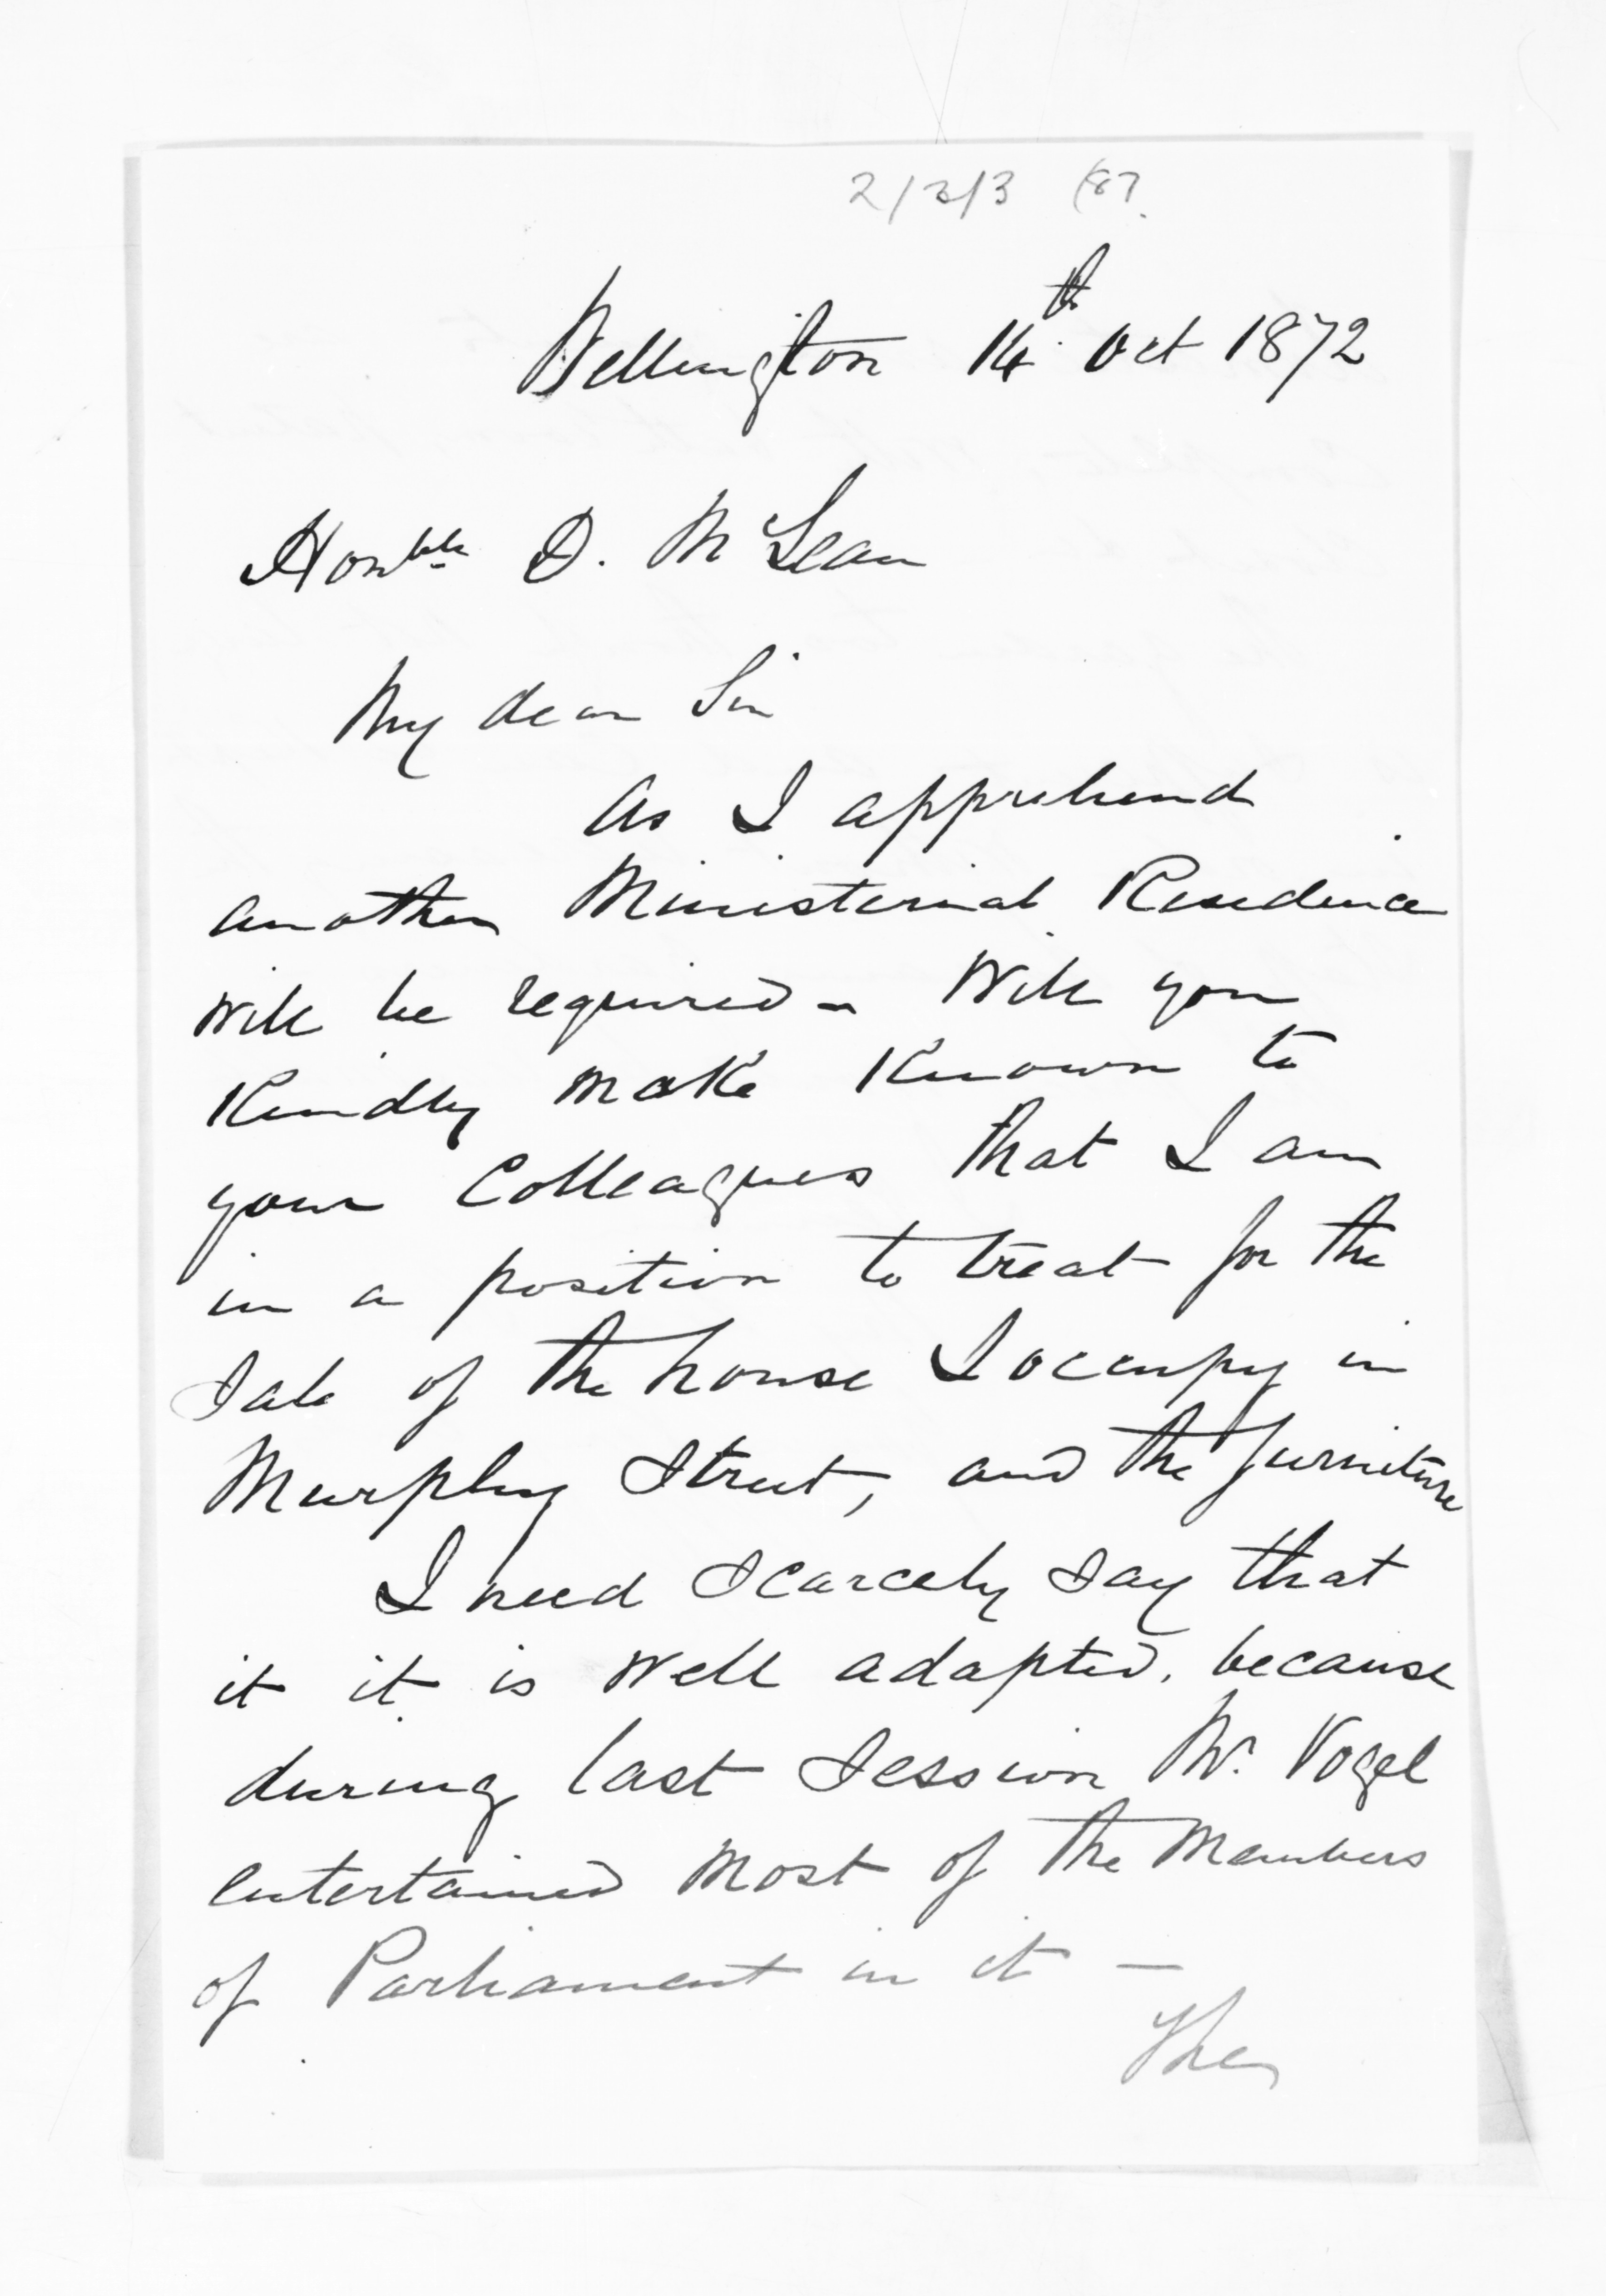 2/3/3 (87.
Wellington 14th Oct 1872
Honble D. McLean
My dear Sir
As I apprehend
another Ministerial Residence
will be required – Will you
Kindly make Known to
your Colleagues that I am
in a position to treat for the
Sale of the house I occupy in
Murphy Street, and the furniture
I need scarcely say that
it it is well adapted, because
during last Session Mr. Vogel
entertained most of the Members
of Parliament in it –
The